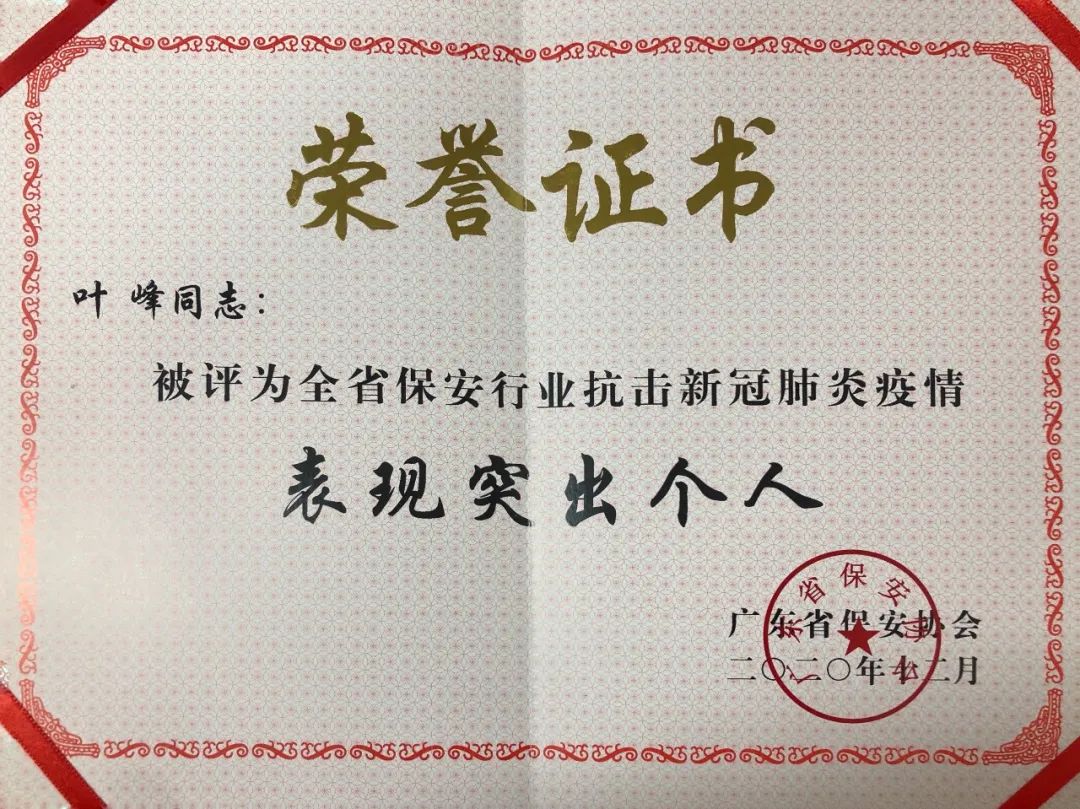 荣誉证书
叶 峰同志：
被评为全省保安行业抗击新冠肺炎疫情
表现突出个人
广东省保安协会
二〇二〇年十二月
广东省保安协会